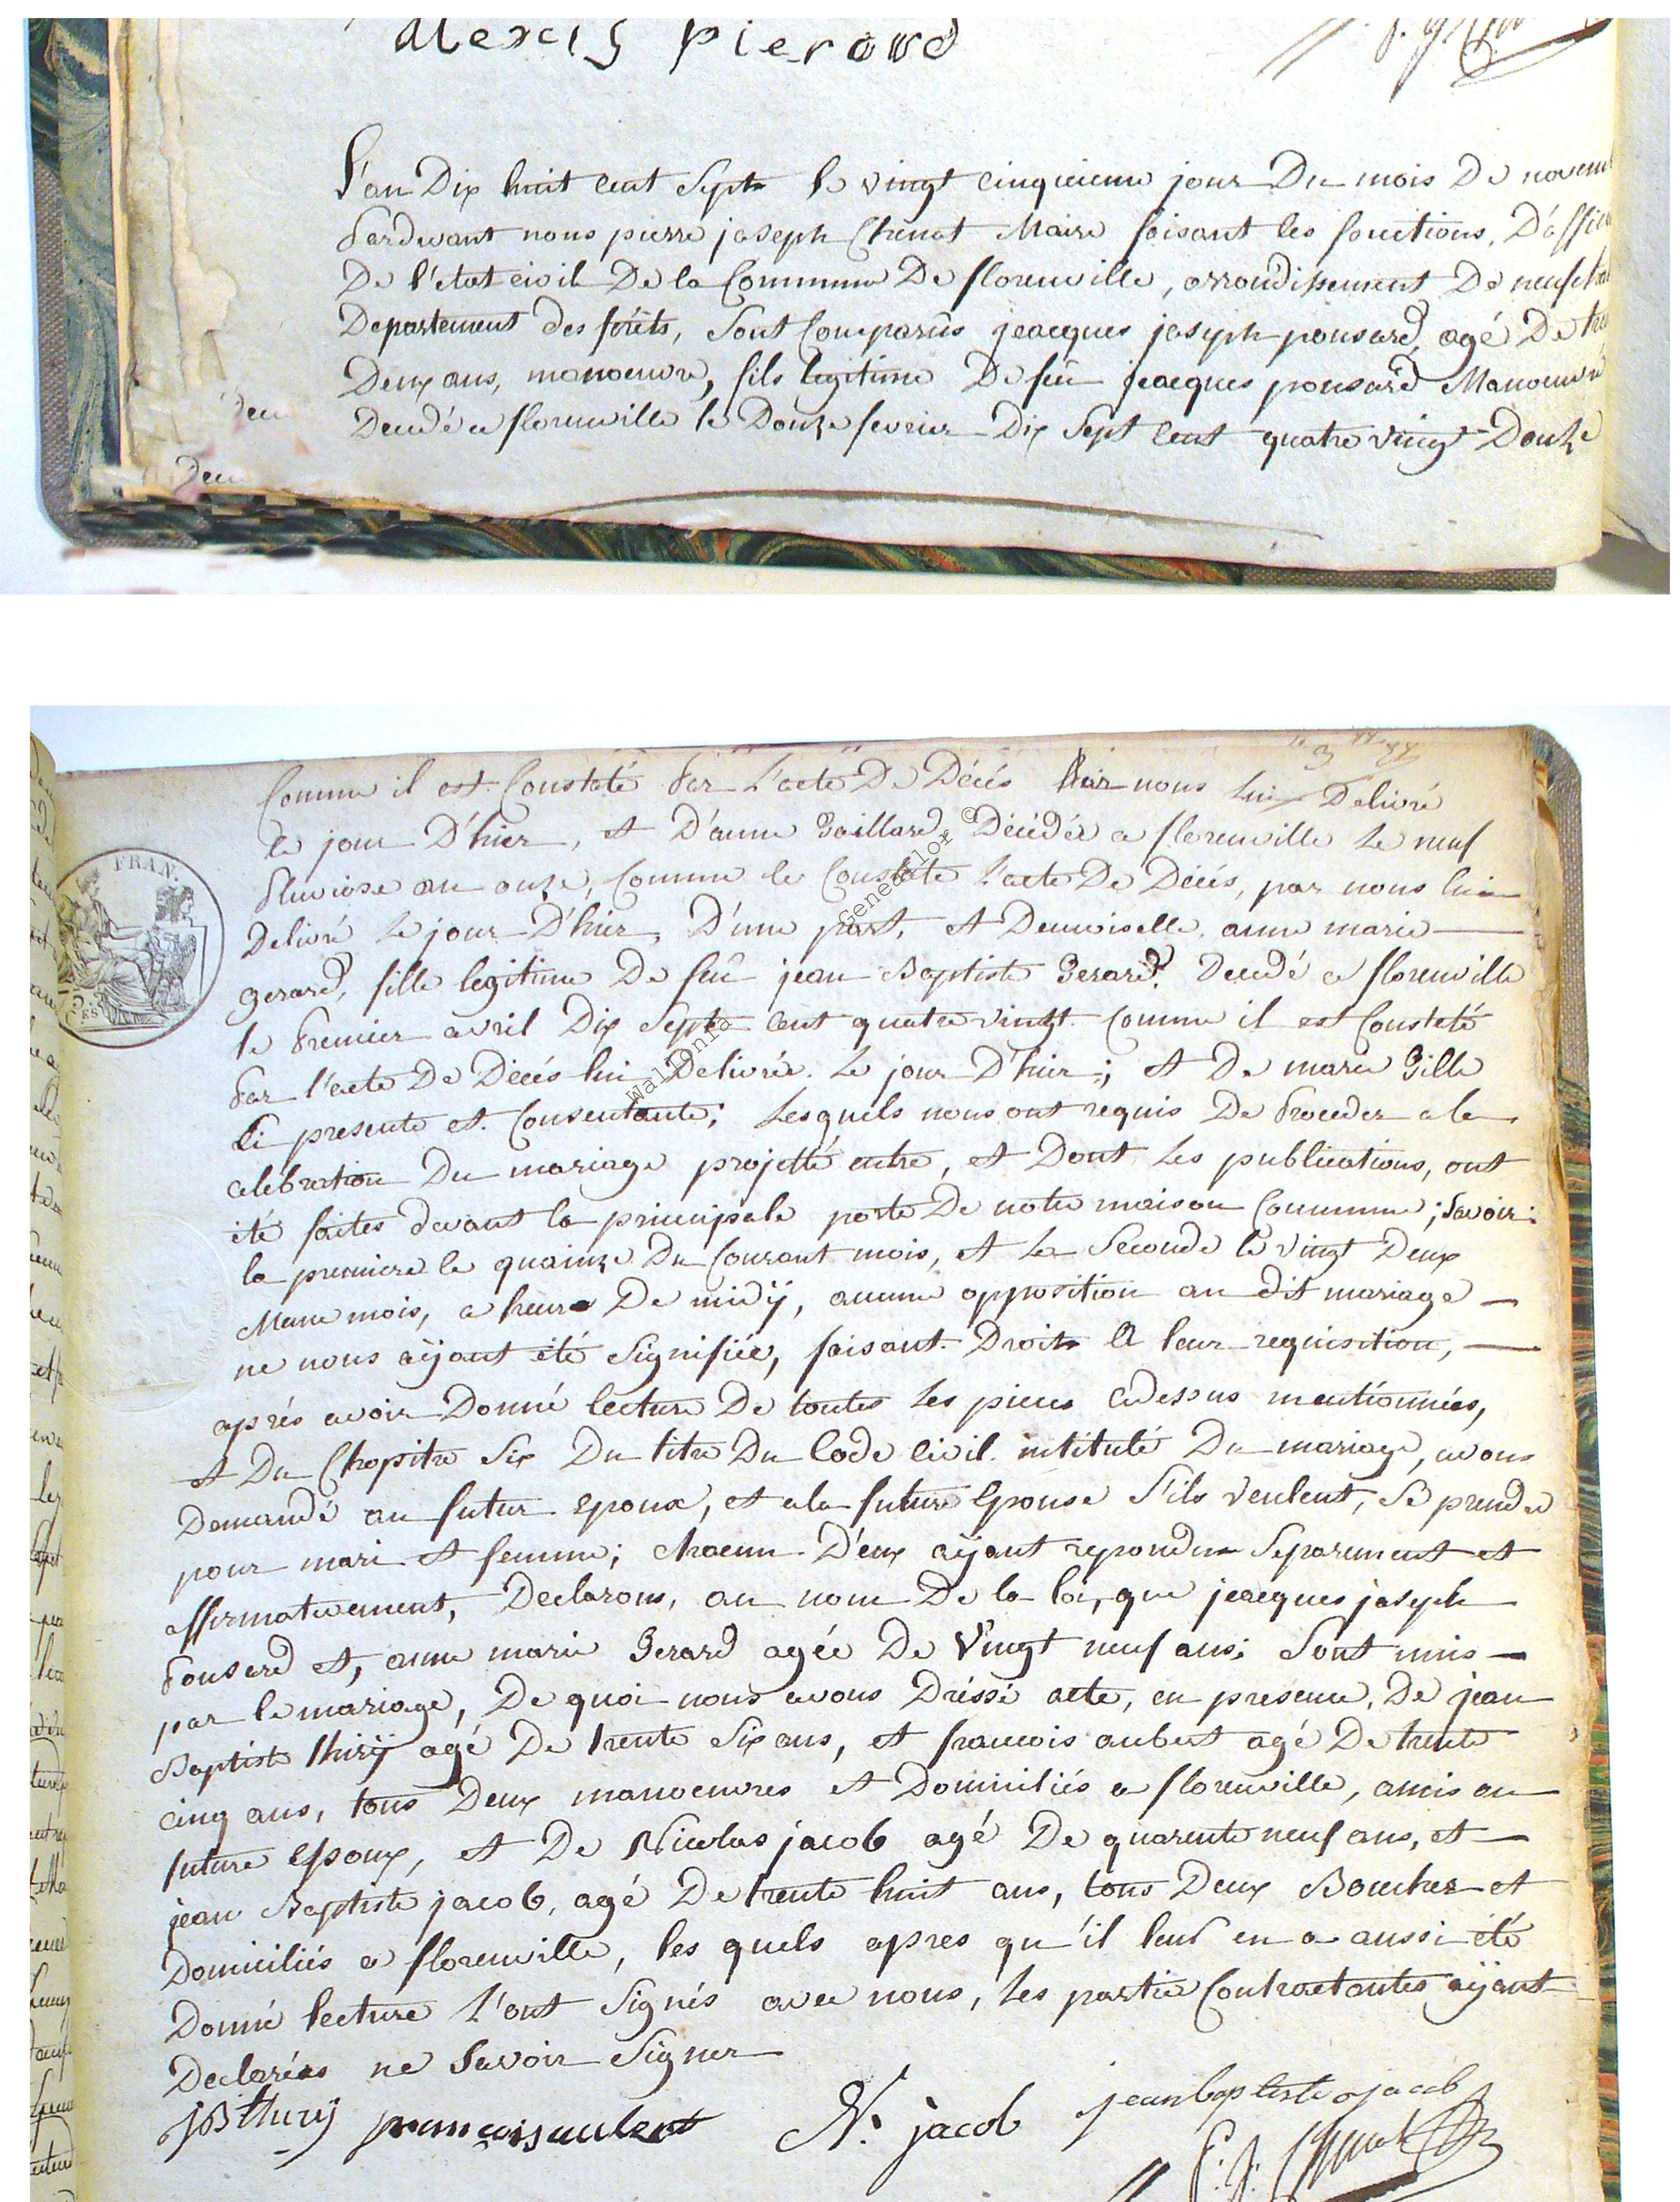 alexis pieroud
L'an Dix huit cent Sept le vingt cinquieme jour Du mois De novem
Pardevant nous pierre joseph Chenot Maire faisant les fonctions, D'offici
De l'état civil De la Commune De florenville, arrondissement De neufchat
Departement des forêts, Sont Comparûs jeacques joseph ponsard, agé De tren
Deux ans, manoeuvre, fils legitime De feû jeacques ponsard Manoeuvre
Decedé a florenville le Douze fevrier Dix Sept Cent quatre vingt Douze
Comme il est Constaté Par L'acte De Décés Par nous lui Delivré
le jour D'hier, et D'anne Gaillard, Décédée a florenville Le neuf
Pluviose an onze, Comme le Constate L'acte De Décés, par nous lui
Delivré Le jour D'hier, D'une part, et Demoiselle anne marie
gerard, fille legitime De feû jean Baptiste Gerard, Decedé a florenville
le Premier avril Dix Sept cent quatre vingt. Comme il est Constaté
Par l'acte De Décés lui Delivrée. Le jour D'hier; et De marie Gille
Ci presente et Consentante; Lesquels nous ont requis De Proceder a la
celebration Du mariage projetté entre, et Dont Les publications, ont
été faites devant la principale porte De notre maison Commune; Savoir:
la premiere le quainze Du Courant mois, et La Seconde le vingt Deux
Meme mois, a heure De midÿ, aucune opposition au dit mariage
ne nous aÿant été Signifiée, faisant Droit A leur requisition,
aprés avoir Donné lecture De toutes Les pieces cidessus mentionnées,
et Du Chapitre Six Du titre Du Code Civil intitulé Du mariage, avons
Demandé au futur epoux, et a la future Epouse S'ils veulent, Se prendre
pour mari et femme; chacun D'eux aÿant repondu Separement et
affirmativement, Declarons, au nom De la loi, que jeacques joseph
Ponsard et, anne marie Gerard agée De Vingt neuf ans; Sont unis
par le mariage, De quoi nous avons Dréssé acte, en presence, De jean
Baptiste thirÿ agé De trente Six ans, et francois aubert agé De trente
cinq ans, tous Deux manoeuvres et Domiciliés a florenville, amis au
future epoux, et De Nicolas jacob agé De quarente neuf ans, et
jean Baptiste jacob, agé De trente huit ans, tous Deux Boucher et
Domiciliés a florenville, les quels apres qu'il leur en a aussi été
Donné lecture L'ont Signés avec nous, Les partie Contractantes aÿant
Declarées ne Savoir Signer
JB thirÿ francois aubert N. jacob jean baptiste jacob
P. J. Chenot
FRAN.
Geneealor ©
Wallonia